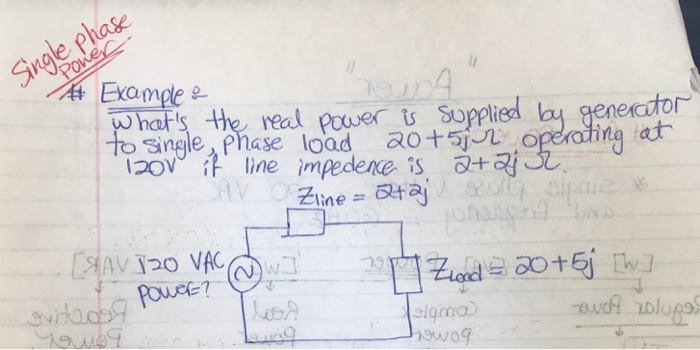 Single phase
Power
# Example :
What's the real power is supplied by generator
to single, phase load 20+5j Ω operating at
120V if line impedence is 2+2j Ω.
Zline = 2+2j
120 VAC
power=?
Zload = 20+5j
"Power"